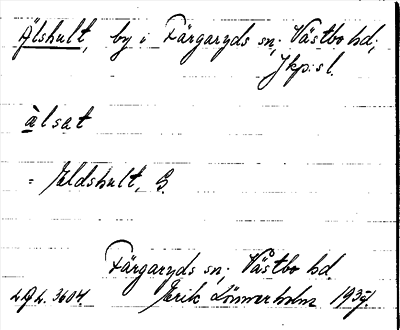 Älshult, by i Färgaryds sn, Västbo hd,
Jkp:s l.
àlsat
= Eldshult, G.
Färgaryds sn, Västbo hd.
LQL. 3604. Erik Lönnerholm 1937.